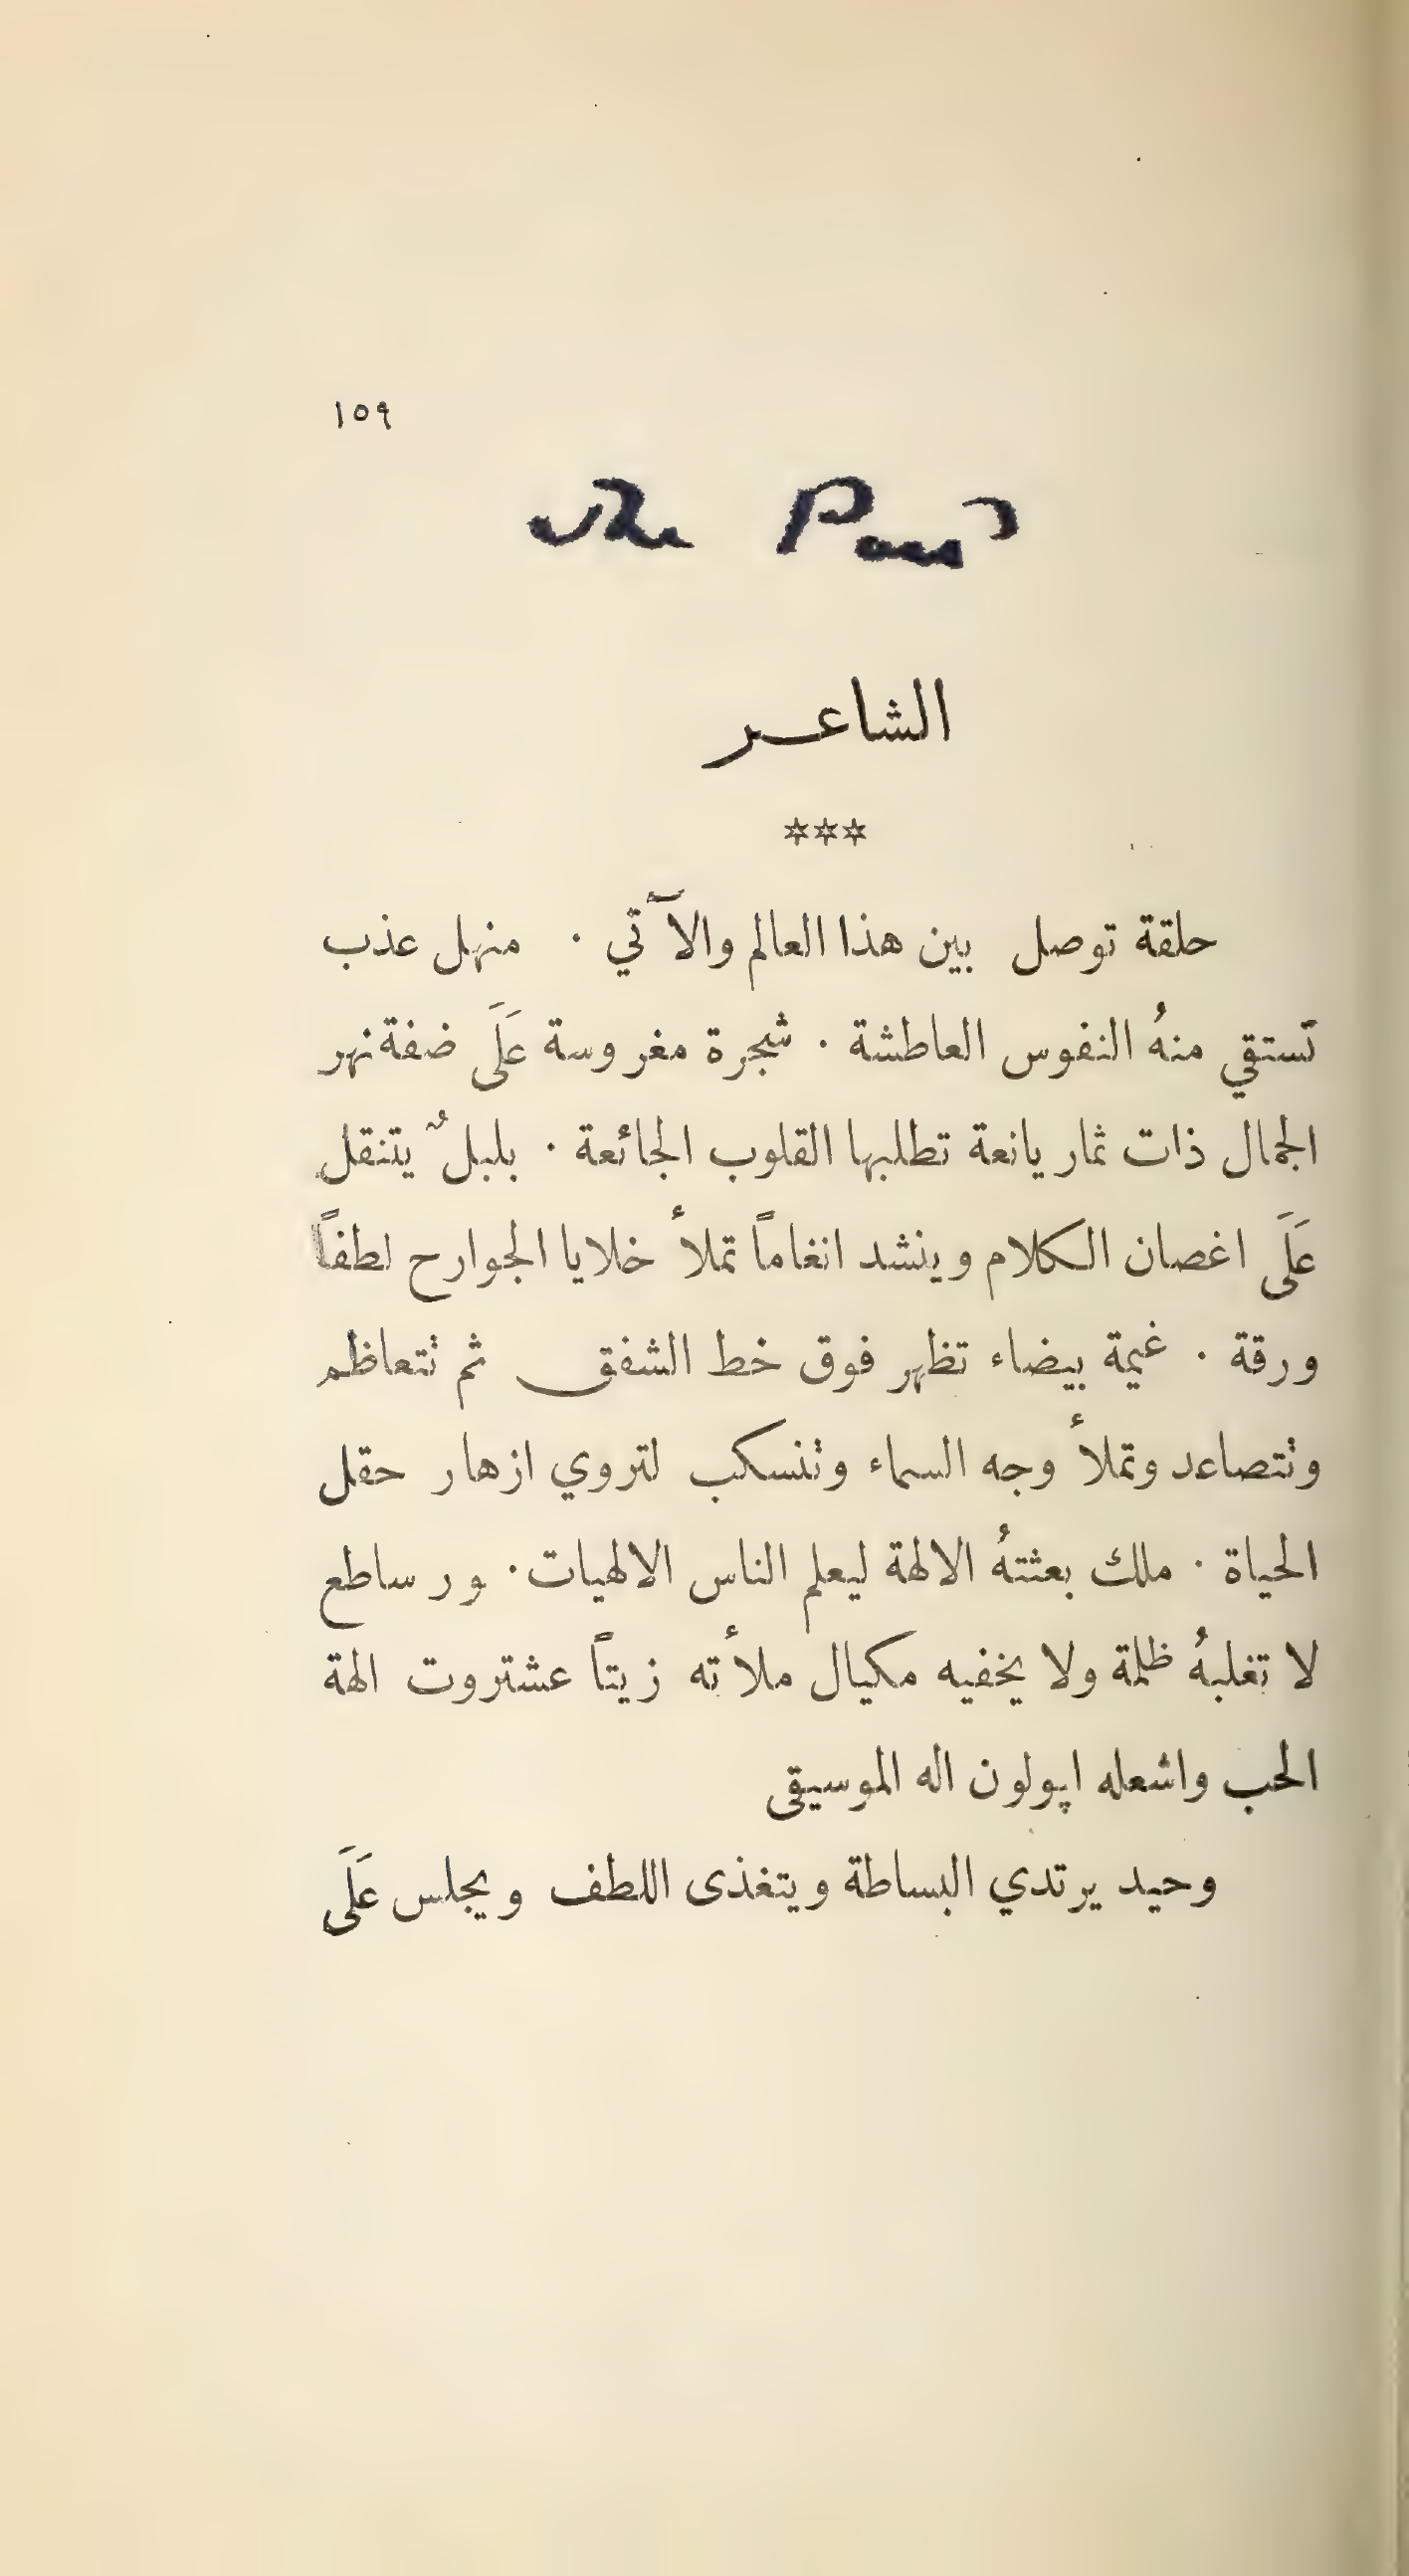 ١٥٩
The Poet
الشاعر
***
حلقة توصل بين هذا العالم والآتي . منهل عذب
تستقي منهُ النفوس العاطشة . شجرة مغروسة عَلَى ضفة نهر
الجمال ذات ثمار يانعة تطلبها القلوب الجائعة . بلبلٌ يتنقل
عَلَى اغصان الكلام وينشد انغاماً تملأ خلايا الجوارح لطفاً
ورقة . غيمة بيضاء تظهر فوق خط الشفق ثم تتعاظم
وتتصاعد وتملأ وجه السماء وتنسكب لتروي ازهار حقل
الحياة . ملك بعثتهُ الالهة ليعلم الناس الالهيات . ور ساطع
لا تغلبهُ ظلمة ولا يخفيه مكيال ملأته زيتاً عشتروت الهة
الحب واشعله اپولون اله الموسيقى
وحيد يرتدي البساطة ويتغذى اللطف ويجلس عَلَى